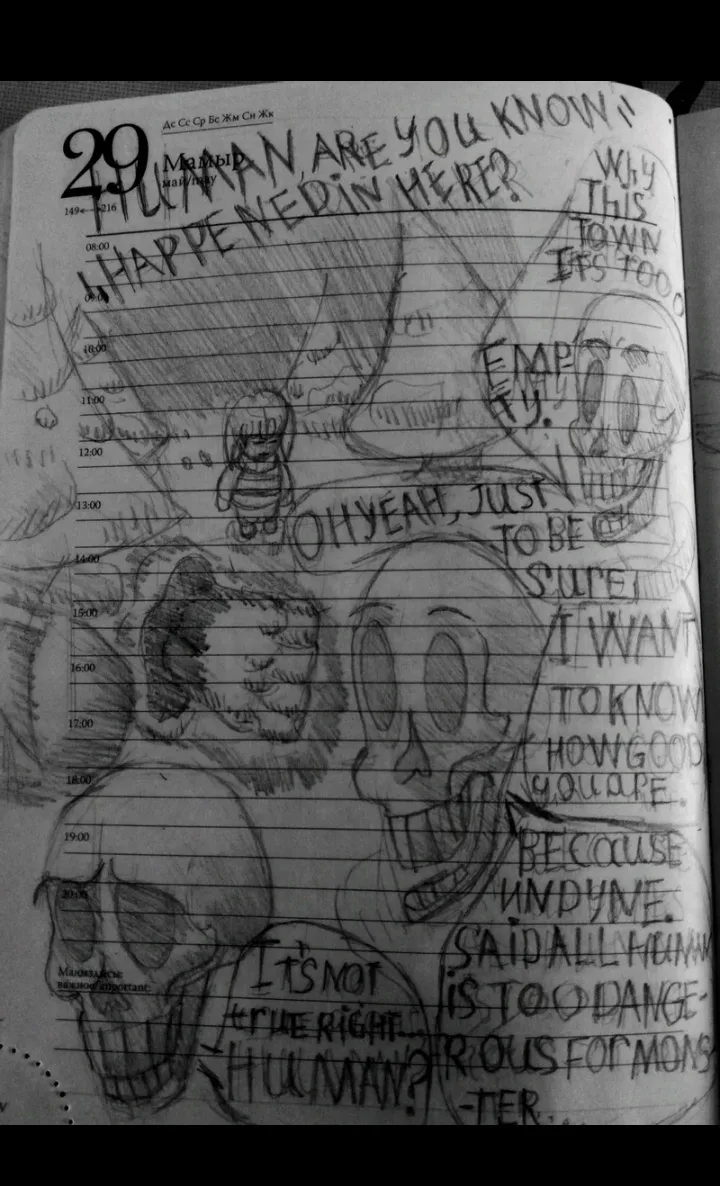 29
Дс Сс Ср Бс Жм Сн Жк
Мамыр
май/may
149 216
HUMAN, ARE YOU KNOW
HAPPENED IN HERE?
WHY
THIS
TOWN
IT'S TOO
EMP
TY.
08:00
09:00
10:00
11:00
12:00
13:00
14:00
15:00
16:00
17:00
18:00
19:00
20:00
OH YEAH, JUST
TO BE
SURE,
I WANT
TO KNOW
HOW GOOD
YOU ARE.
BECAUSE
UNDYNE.
SAID ALL HUMAN
IS TOO DANGE-
ROUS FOR MONS
-TER...
ITS NOT
TRUE RIGHT...
HUMAN?
Маңызд
важное/important: